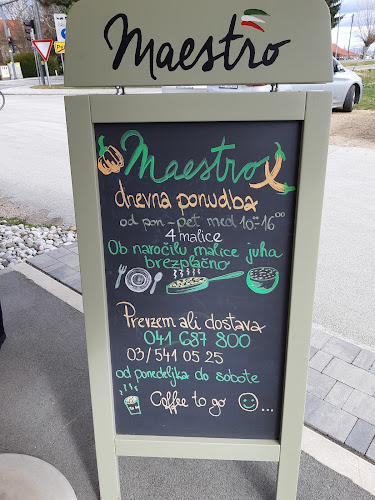 Maestro
Maestro
dnevna ponudba
od pon-pet med 10:00-16:00
4 malice
Ob naročilu malice juha
brezplačno
Prevzem ali dostava
041 687 800
03/541 05 25
od ponedeljka do sobote
Coffee to go ...